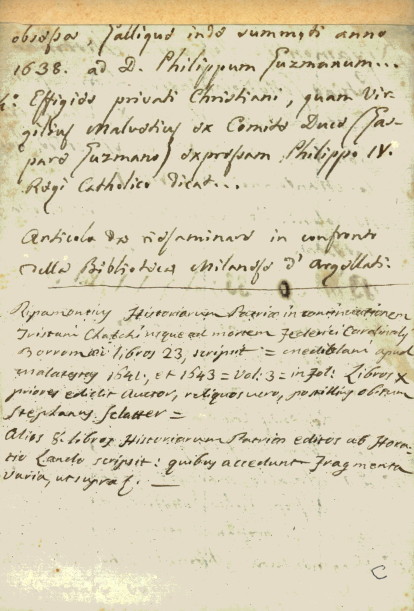 obsessae, Gallique inde summoti anno
1638. ad D. Philippum Guzmanum...
4.° Effigies privati Christiani, quam Vir-
gilius Malvetius ex Comite Duce (Gas-
pare Guzmano) expressam Philippo IV.
Regi Catholico dicat...
Articolo da riesaminare in confronto
della Biblioteca Milanese d'Argellati.
Ripamontius Historiarum Patriae in continuationem
Tristani Chalchi usque ad mortem Federici Cardinalis
Borromaei libros 23, scripsit = Mediolani apud
Malatestas 1641, et 1643 = Vol: 3 = in fol: Libros X
priores edidit Auctor, reliquos vero, post illius obitum
Stephanus Sclatter =
Alios 8. libros Historiarum Patriae editos ab Hora-
tio Lando scripsit: quibus accedunt Fragmenta
varia, ut supra